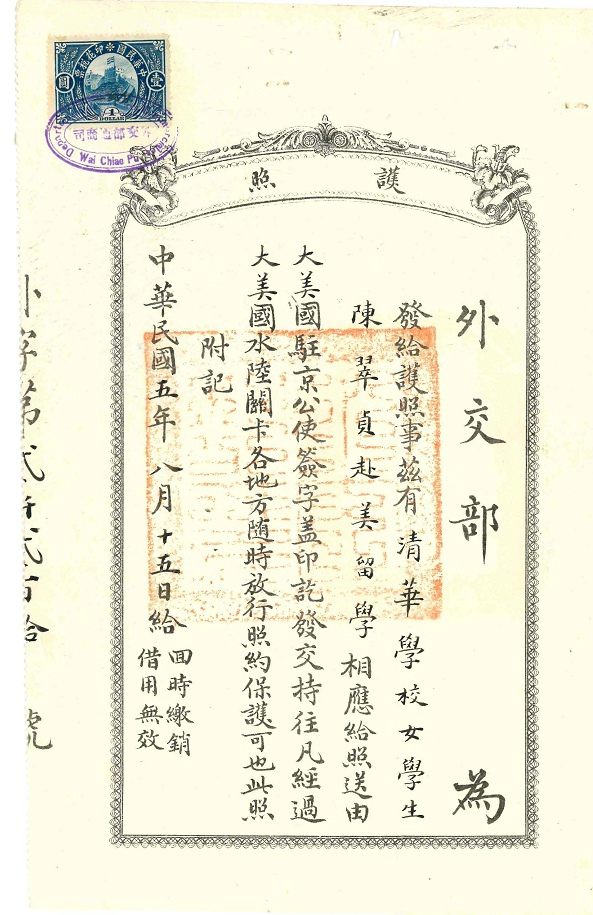 護照
外交部 為
發給護照事茲有清華學校女學生
陳翠貞赴美留學相應給照送由
大美國駐京公使簽字盖印訖發交持往凡經過
大美國水陸關卡各地方随時放行照約保護可也此照
附記
中華民國五年八月十五日給
回時繳銷
借用無效
中華民國印花稅票
壹圓
1
DOLLAR
外交部通商司
Wai Chiao Pu